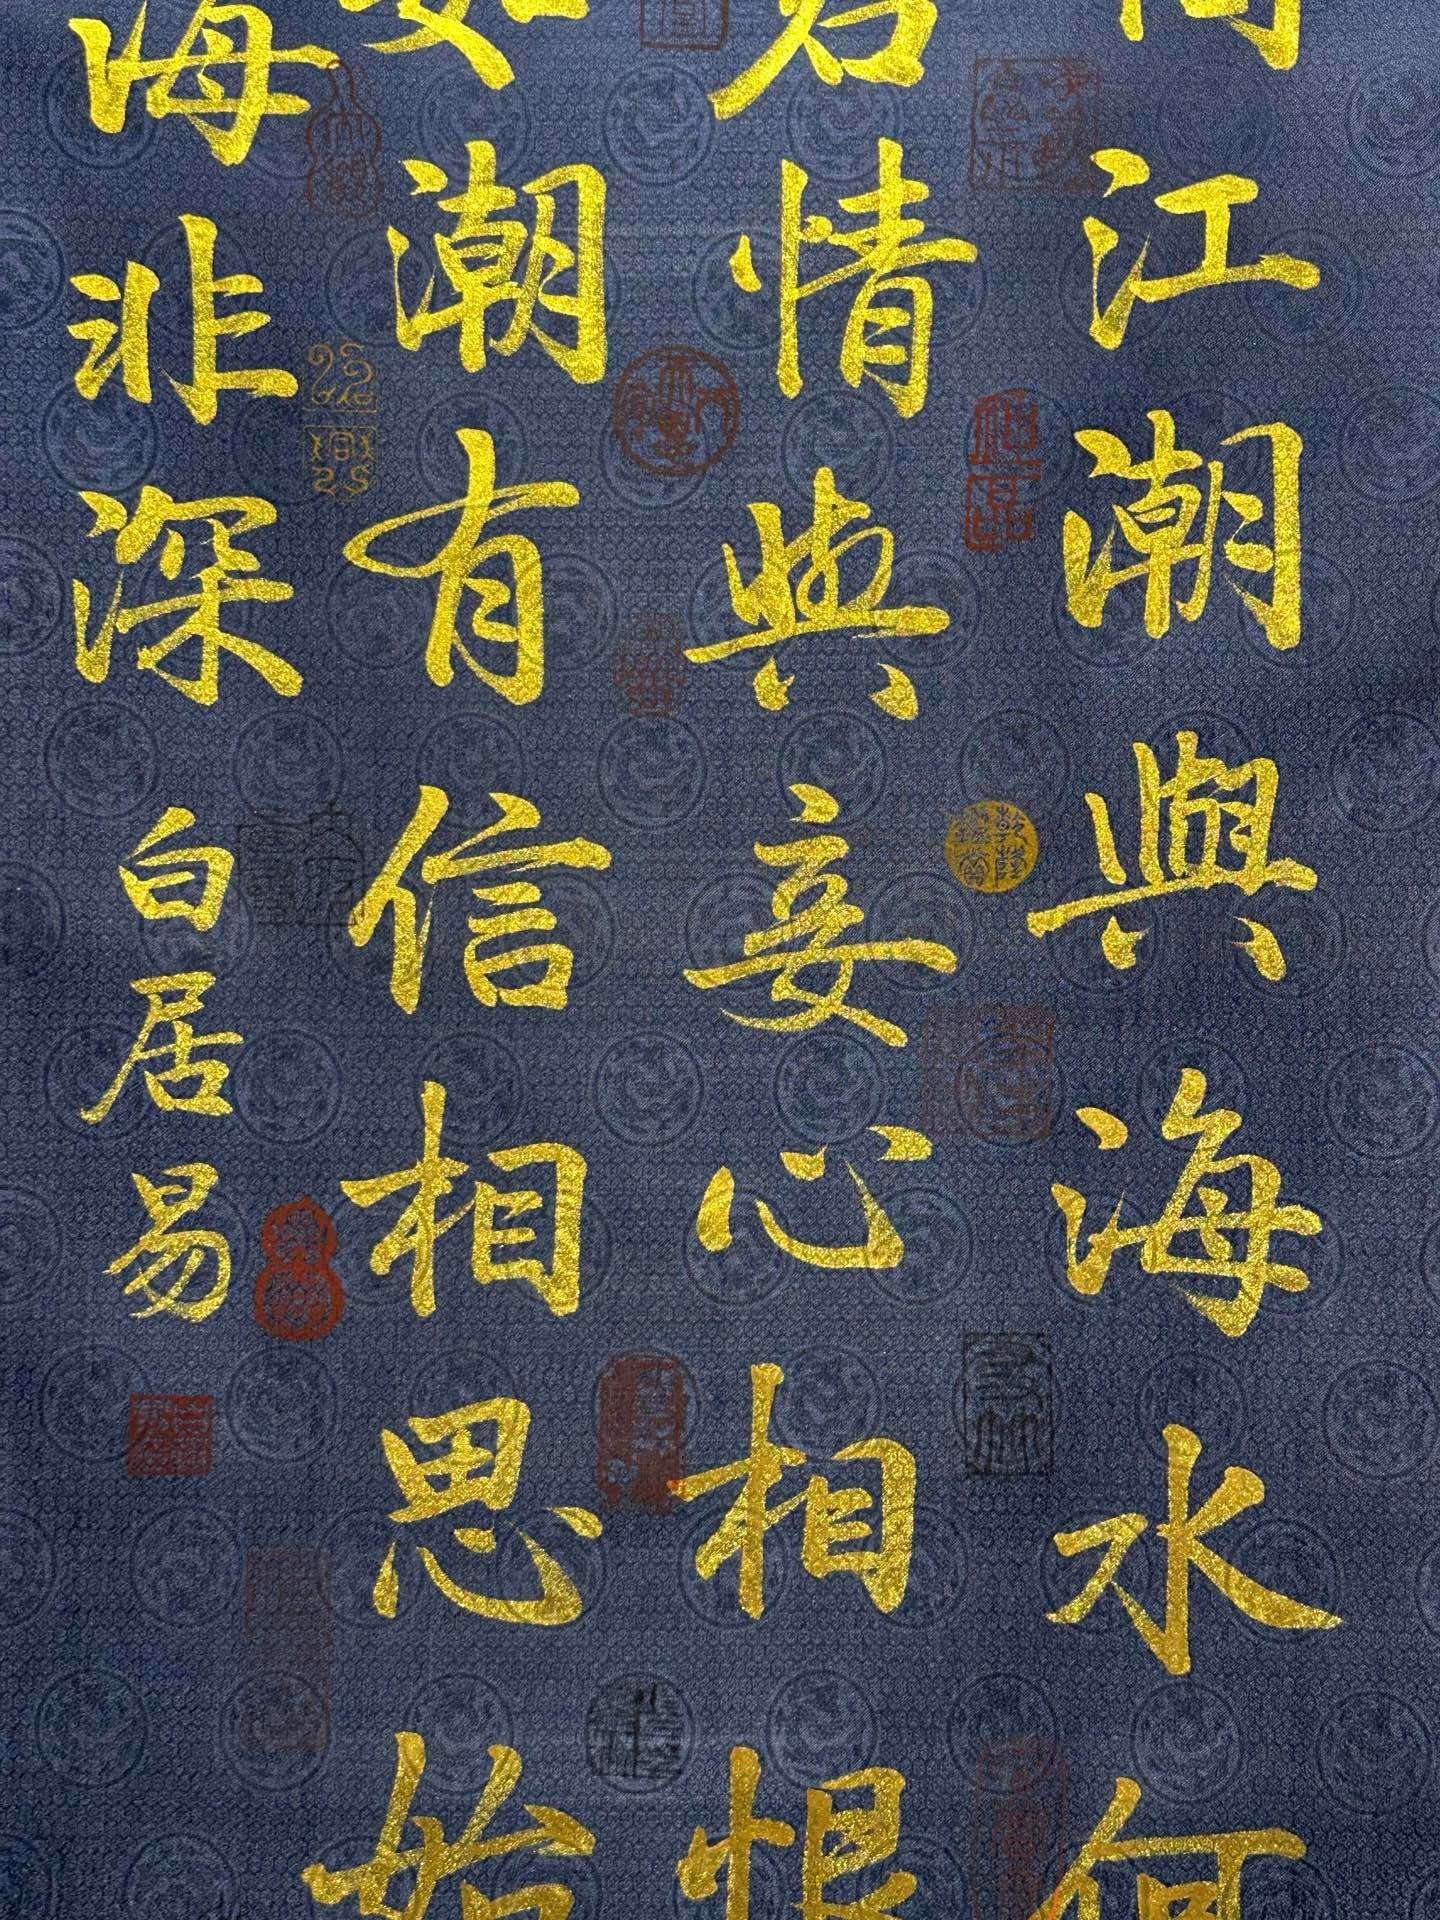 江潮與海水何
君情與妾心相恨
潮有信相思始
海非深
白居易